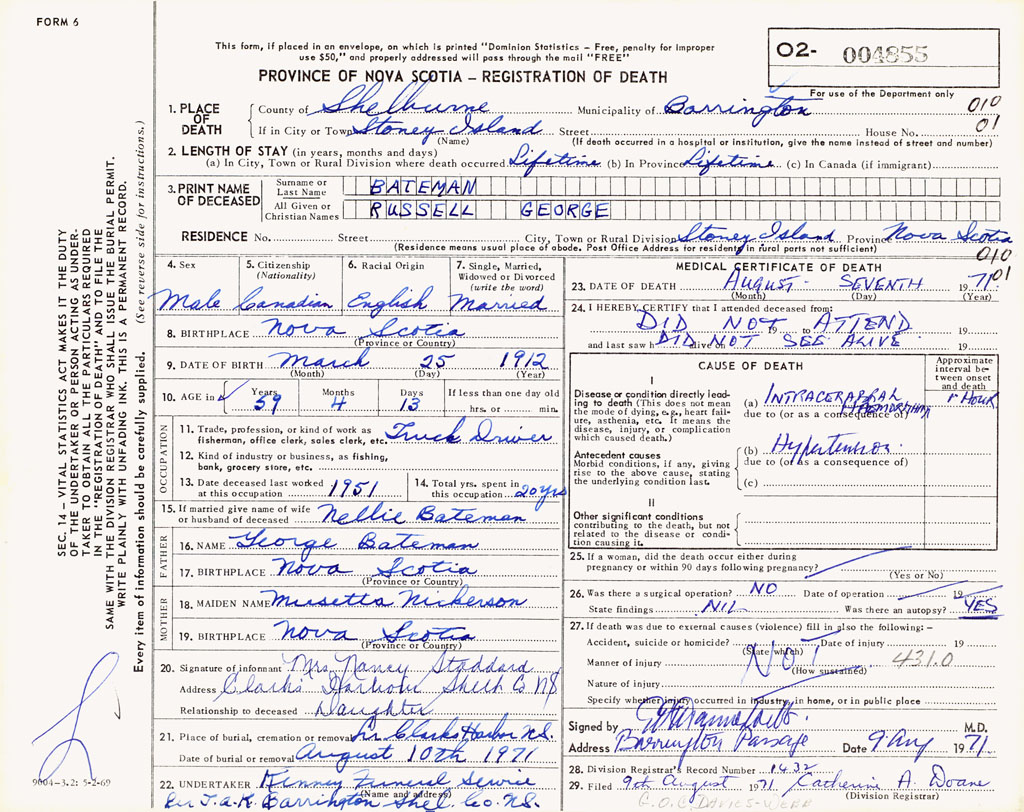 FORM 6
This form, if placed in an envelope, on which is printed "Dominion Statistics – Free, penalty for improper
use $50," and properly addressed will pass through the mail "FREE"
PROVINCE OF NOVA SCOTIA – REGISTRATION OF DEATH
O2- 004855
For use of the Department only
010
01
1. PLACE OF DEATH
County of Shelburne Municipality of Barrington
If in City or Town Stoney Island Street House No.
(Name) (If death occurred in a hospital or institution, give the name instead of street and number)
2. LENGTH OF STAY (in years, months and days)
(a) In City, Town or Rural Division where death occurred Lifetime (b) In Province Lifetime (c) In Canada (if immigrant)
3. PRINT NAME OF DECEASED
Surname or Last Name BATEMAN
All Given or Christian Names RUSSELL GEORGE
RESIDENCE No. Street City, Town or Rural Division Stoney Island Province Nova Scotia
(Residence means usual place of abode. Post Office Address for residents in rural parts not sufficient)
010
01
4. Sex Male
5. Citizenship (Nationality) Canadian
6. Racial Origin English
7. Single, Married, Widowed or Divorced (write the word) Married
8. BIRTHPLACE Nova Scotia
(Province or Country)
9. DATE OF BIRTH March 25 1912
(Month) (Day) (Year)
10. AGE in Years 59 Months 4 Days 13 If less than one day old hrs. or min.
OCCUPATION
11. Trade, profession, or kind of work as fisherman, office clerk, sales clerk, etc. Truck Driver
12. Kind of industry or business, as fishing, bank, grocery store, etc.
13. Date deceased last worked at this occupation 1951
14. Total yrs. spent in this occupation 20 yrs
15. If married give name of wife or husband of deceased Nellie Bateman
FATHER
16. NAME George Bateman
17. BIRTHPLACE Nova Scotia
(Province or Country)
MOTHER
18. MAIDEN NAME Musetta Nickerson
19. BIRTHPLACE Nova Scotia
(Province or Country)
20. Signature of informant Mrs. Nancy Stoddard
Address Clark's Harbour Shelb Co NS
Relationship to deceased Daughter
21. Place of burial, cremation or removal Clarks Harbor N.S.
Date of burial or removal August 10th 1971
22. UNDERTAKER Kenney Funeral Service
(Name and address)
Per J.A.K. Barrington Shel. Co. N.S.
MEDICAL CERTIFICATE OF DEATH
23. DATE OF DEATH AUGUST SEVENTH 1971
(Month) (Day) (Year)
24. I HEREBY CERTIFY that I attended deceased from:
DID NOT 19 to ATTEND 19
and last saw h DID NOT alive on SEE ALIVE 19
CAUSE OF DEATH
Approximate interval between onset and death
I
Disease or condition directly leading to death (This does not mean the mode of dying, e.g., heart failure, asthenia, etc. It means the disease, injury, or complication which caused death.)
(a) INTRACEREBRAL HAEMORRHAGE 1 HOUR
due to (or as a consequence of)
Antecedent causes
Morbid conditions, if any, giving rise to the above cause, stating the underlying condition last.
(b) Hypertension
due to (or as a consequence of)
(c)
II
Other significant conditions
contributing to the death, but not related to the disease or condition causing it.
25. If a woman, did the death occur either during pregnancy or within 90 days following pregnancy?
(Yes or No)
26. Was there a surgical operation? NO Date of operation 19
State findings NIL Was there an autopsy? YES
27. If death was due to external causes (violence) fill in also the following: –
Accident, suicide or homicide? Date of injury 19
(State which)
Manner of injury NO! 431.0
(How sustained)
Nature of injury
Specify whether injury occurred in industry, in home, or in public place
Signed by M.D.
Address Barrington Passage Date 9 Aug 1971
28. Division Registrar's Record Number 1432
29. Filed 9th August 1971 Catherine A. Doane
(Division Registrar)
SEC. 14 – VITAL STATISTICS ACT MAKES IT THE DUTY
OF THE UNDERTAKER OR PERSON ACTING AS UNDER-
TAKER TO OBTAIN ALL THE PARTICULARS REQUIRED
IN THE "REGISTRATION OF DEATH" AND TO FILE THE
SAME WITH THE DIVISION REGISTRAR WHO SHALL ISSUE THE BURIAL PERMIT.
WRITE PLAINLY WITH UNFADING INK. THIS IS A PERMANENT RECORD.
Every item of information should be carefully supplied. (See reverse side for instructions.)
9004-3.2: 5-2-69